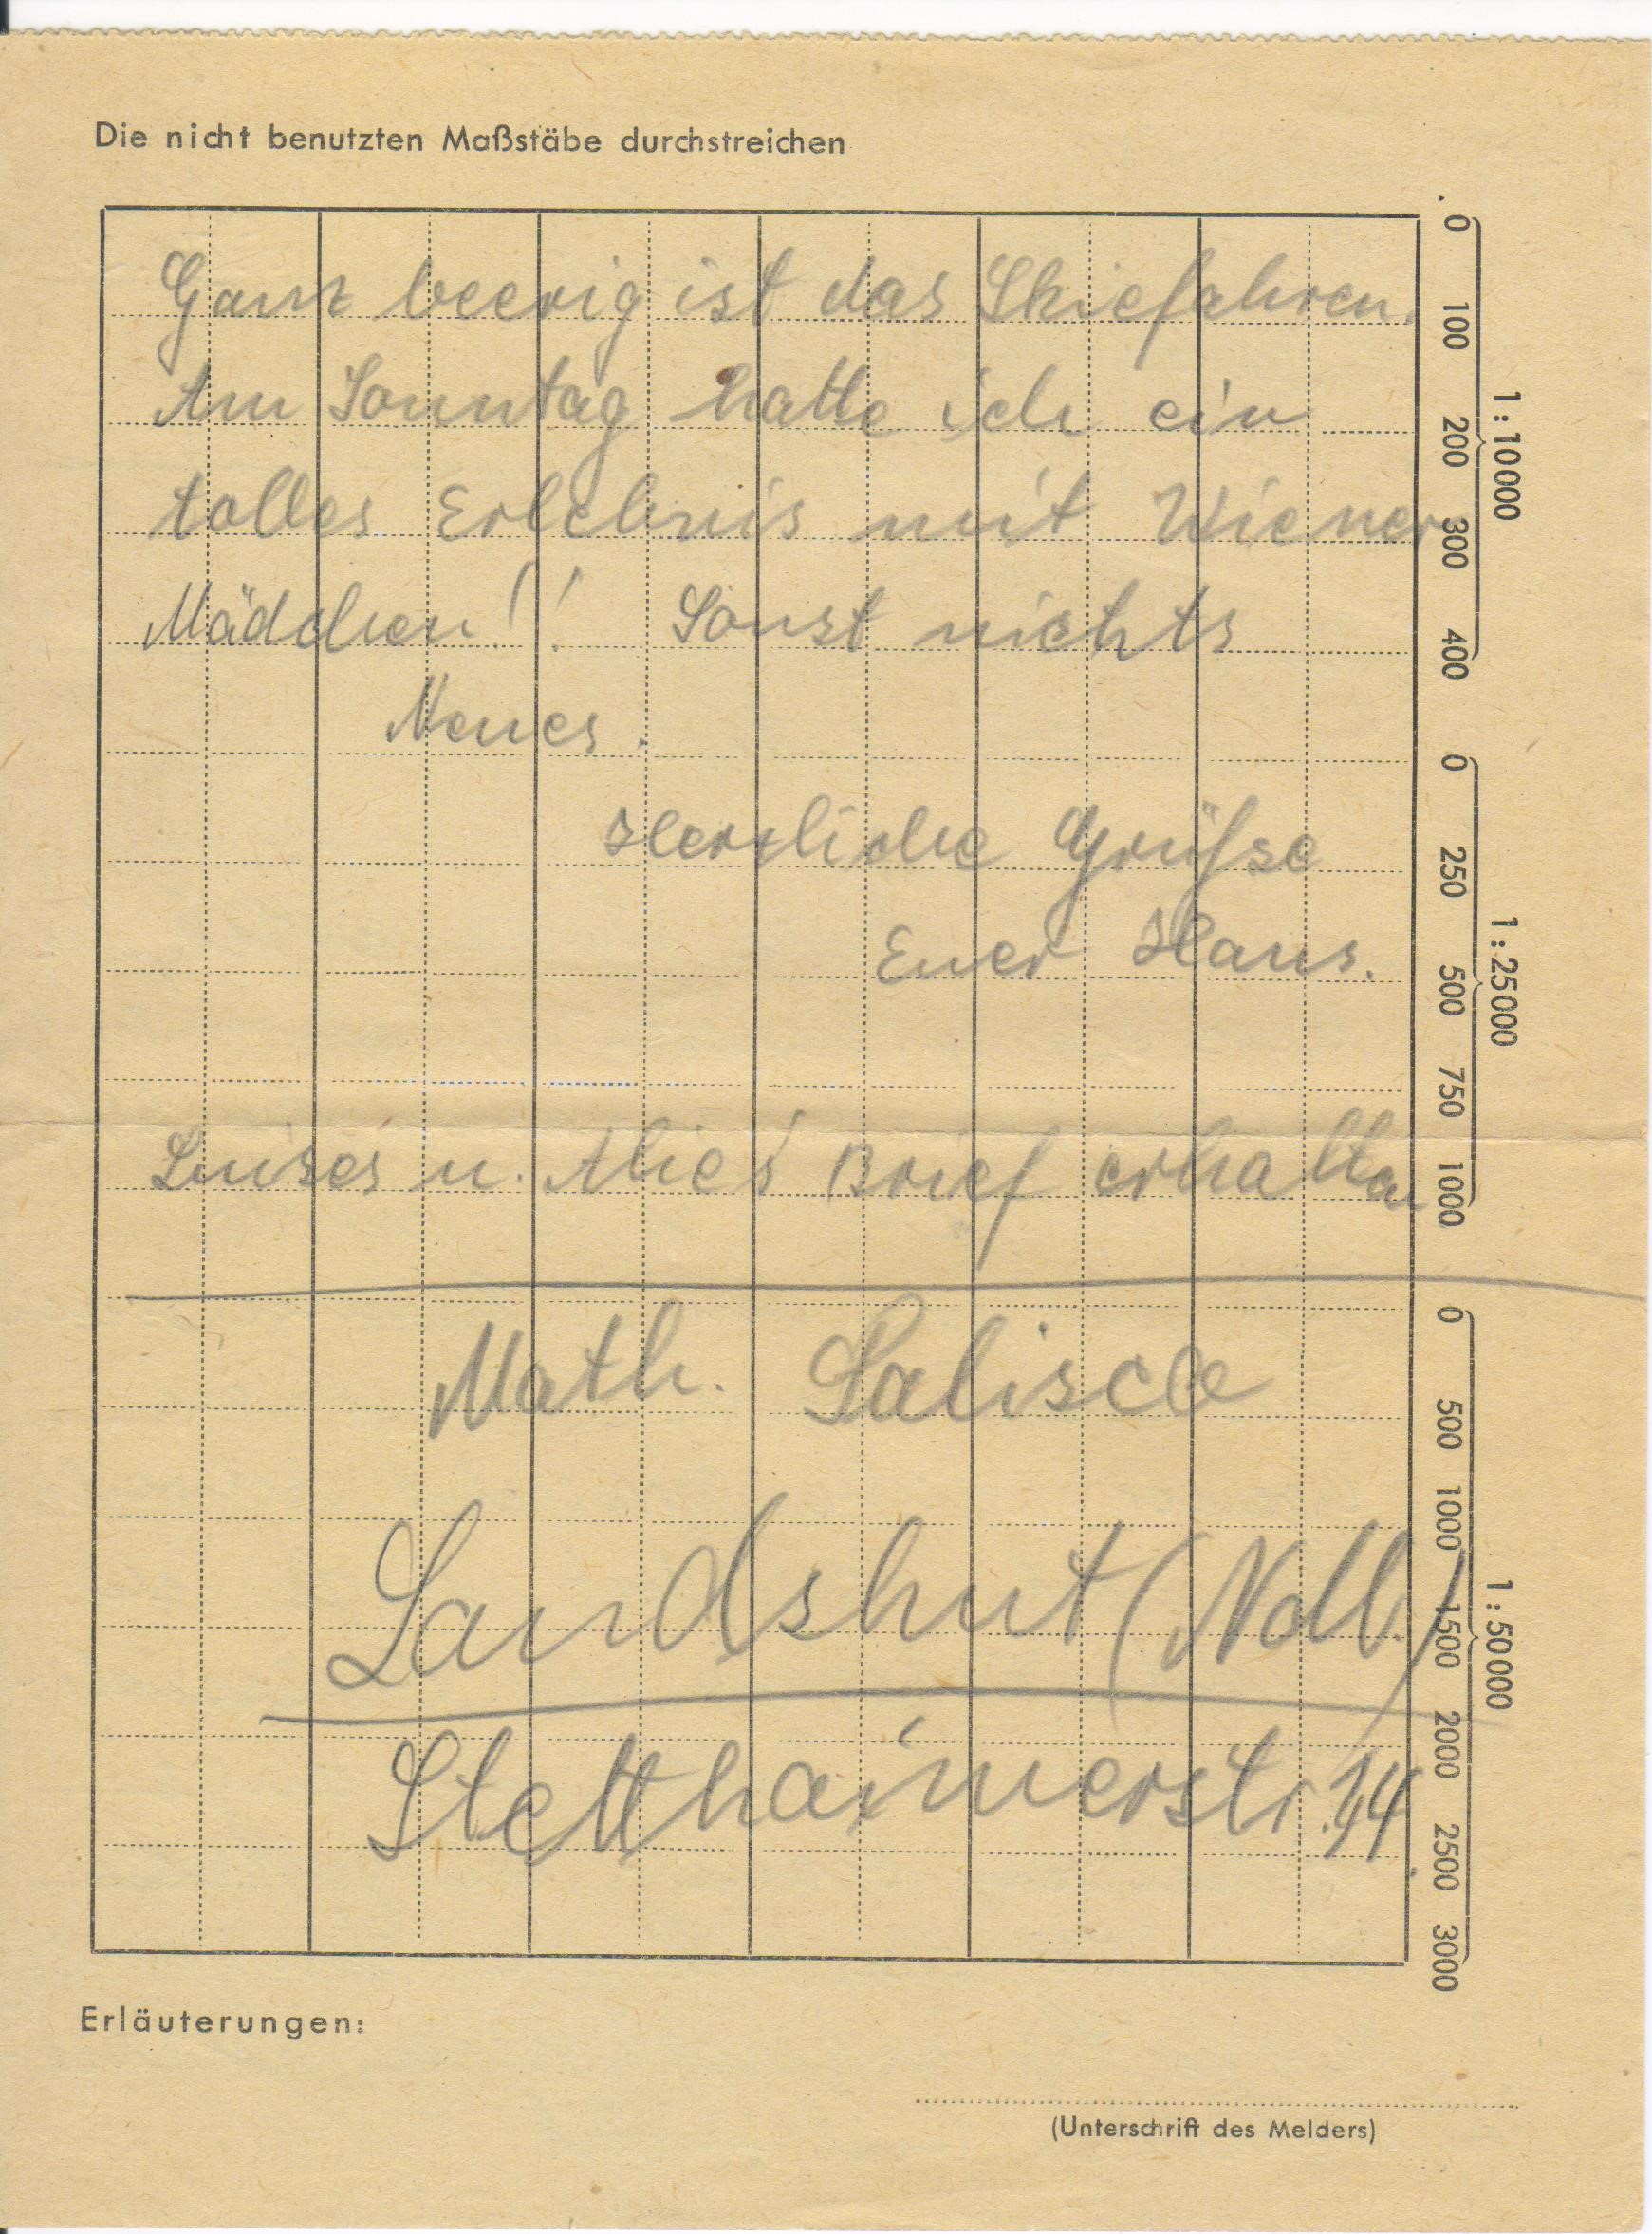 Die nicht benutzten Maßstäbe durchstreichen
Ganz beerig ist das Skiefahren.
Am Sonntag hatte ich ein
tolles Erlebnis mit Wiener
Mädchen!! Sonst nichts
Neues.
Herzliche Grüße
Euer Hans.
Luises u. Brief erhalten
Math.
Landshut (Ndb.)
Stetthaimerstr. 14
0 100 200 300 400
1:10000
0 250 500 750 1000
1:25000
0 500 1000 1500 2000 2500 3000
1:50000
Erläuterungen:
(Unterschrift des Melders)